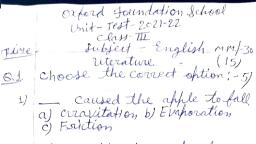 Oxford Foundation School
Unit-Test-2021-22
Class III
Time- Subject - English M.M-30
Literature - (15)
Q.1 Choose the correct option:-5)
1) __ caused the apple to fall
a) Gravitation b) Evaporation
c) Friction